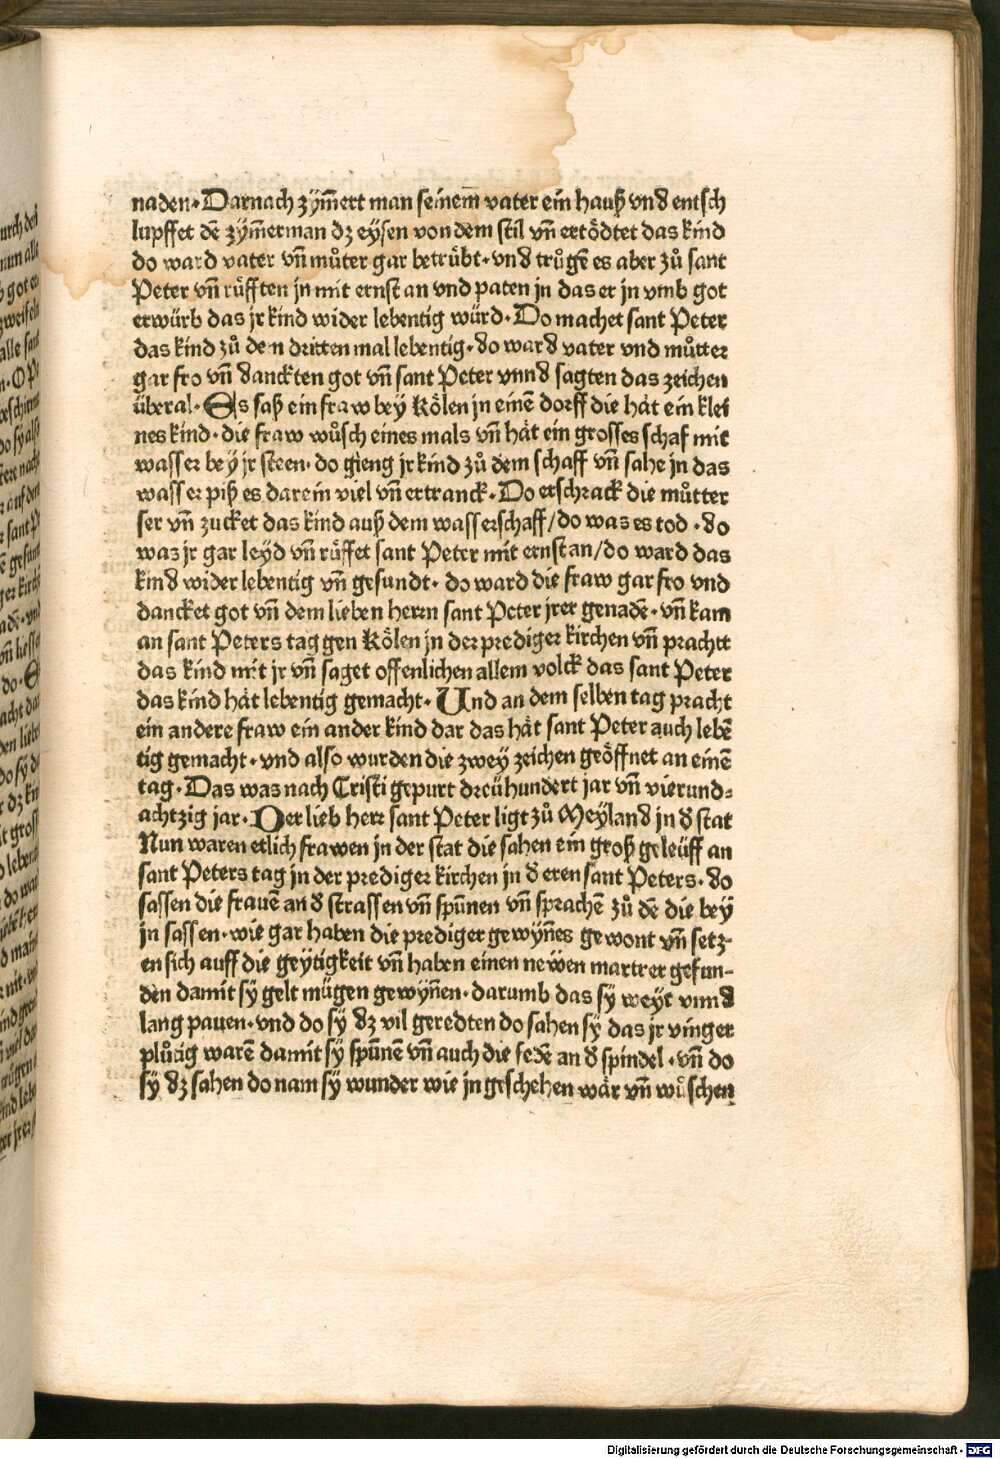 naden·Darnach zym̃ert man seinem̃ vater ein hauß vnd entsch
lupffet dē zym̃erman dz eysen von dem stil vñ ertödtet das kind
do ward vater vñ můter gar betrübt·vnd trůgē es aber zů sant
Peter vñ rüfften jn mit ernst an vnd paten jn das er jn vmb got
erwürb das jr kind wider lebentig würd·Do machet sant Peter
das kind zů dem dritten mal lebentig·do ward vater vnd můtter
gar fro vñ danckten got vñ sant Peter vnnd sagten das zeichen
überal·Es saß ein fraw bey Kölen jn einē dorff die hät ein klei
nes kind·die fraw wůsch eines mals vñ hät ein grosses schaf mit
wasser bey jr steen·do gieng jr kind zů dem schaff vñ sahe jn das
wasser piß es darein viel vñ ertranck·Do erschrack die můtter
ser vñ zucket das kind auß dem wasserschaff/do was es tod·do
was jr gar leyd vñ rüffet sant Peter mit ernst an/do ward das
kind wider lebentig vñ gesundt·do ward die fraw gar fro vnd
dancket got vñ dem lieben herrn sant Peter jrer genadē·vñ kam
an sant Peters tag gen Kölen jn der prediger kirchen vñ prachtt
das kind mit jr vñ saget offenlichen allem volck das sant Peter
das kind hät lebentig gemacht·Und an dem selben tag pracht
ein andere fraw ein ander kind dar das hät sant Peter auch lebē
tig gemacht·vnd also wurden die zwey zeichen geöffnet an einē
tag·Das was nach Cristi gepurt dreühundert jar vñ vierund⸗
achtzig jar·Der lieb herr sant Peter ligt zů Meyland jn d̕ stat
Nun waren etlich frawen jn der stat die sahen ein groß geleüff an
sant Peters tag jn der prediger kirchen jn d̕ eren sant Peters·do
sassen die frauē an d̕ strassen vñ spūnen vñ sprachē zů dē die bey
jn sassen·wie gar haben die prediger gewyñes gewont vñ setz⸗
en sich auff die geytigkeit vñ haben einen newen martrer gefun⸗
den damit sy gelt mügen gewyñen·darumb das sy weyt vnnd
lang pauen·vnd do sy dz vil geredten do sahen sy das jr vinger
plůtig warē damit sy spūnē vñ auch die fedē an d̕ spindel·vñ do
sy dz sahen do nam sy wunder wie jn geschehen wär vñ wůschen
Digitalisierung gefördert durch die Deutsche Forschungsgemeinschaft - DFG